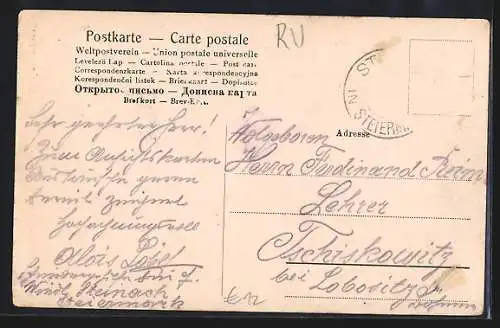 Postkarte — Carte postale
Weltpostverein — Union postale universelle
Levelező Lap — Cartolina postale — Post card
Correspondenzkarte — Karta korespondencyjna
Korespondenční lístek — Briefkaart — Dopisnica
Открытое письмо — Дописна карта
Brefkort — Brev-Kort
RU
ST
IN
STEIERM
Adresse
Sehr geehrter Herr!
Zum Ansichtskarten
Austausch gerne
bereit zeichnet
Hochachtungsvoll
Alois
Steinach
Steiermark
Wohlgeboren
Herrn Ferdinand
Lehrer
Tschiskowitz
bei Lobositz
Böhmen
€12